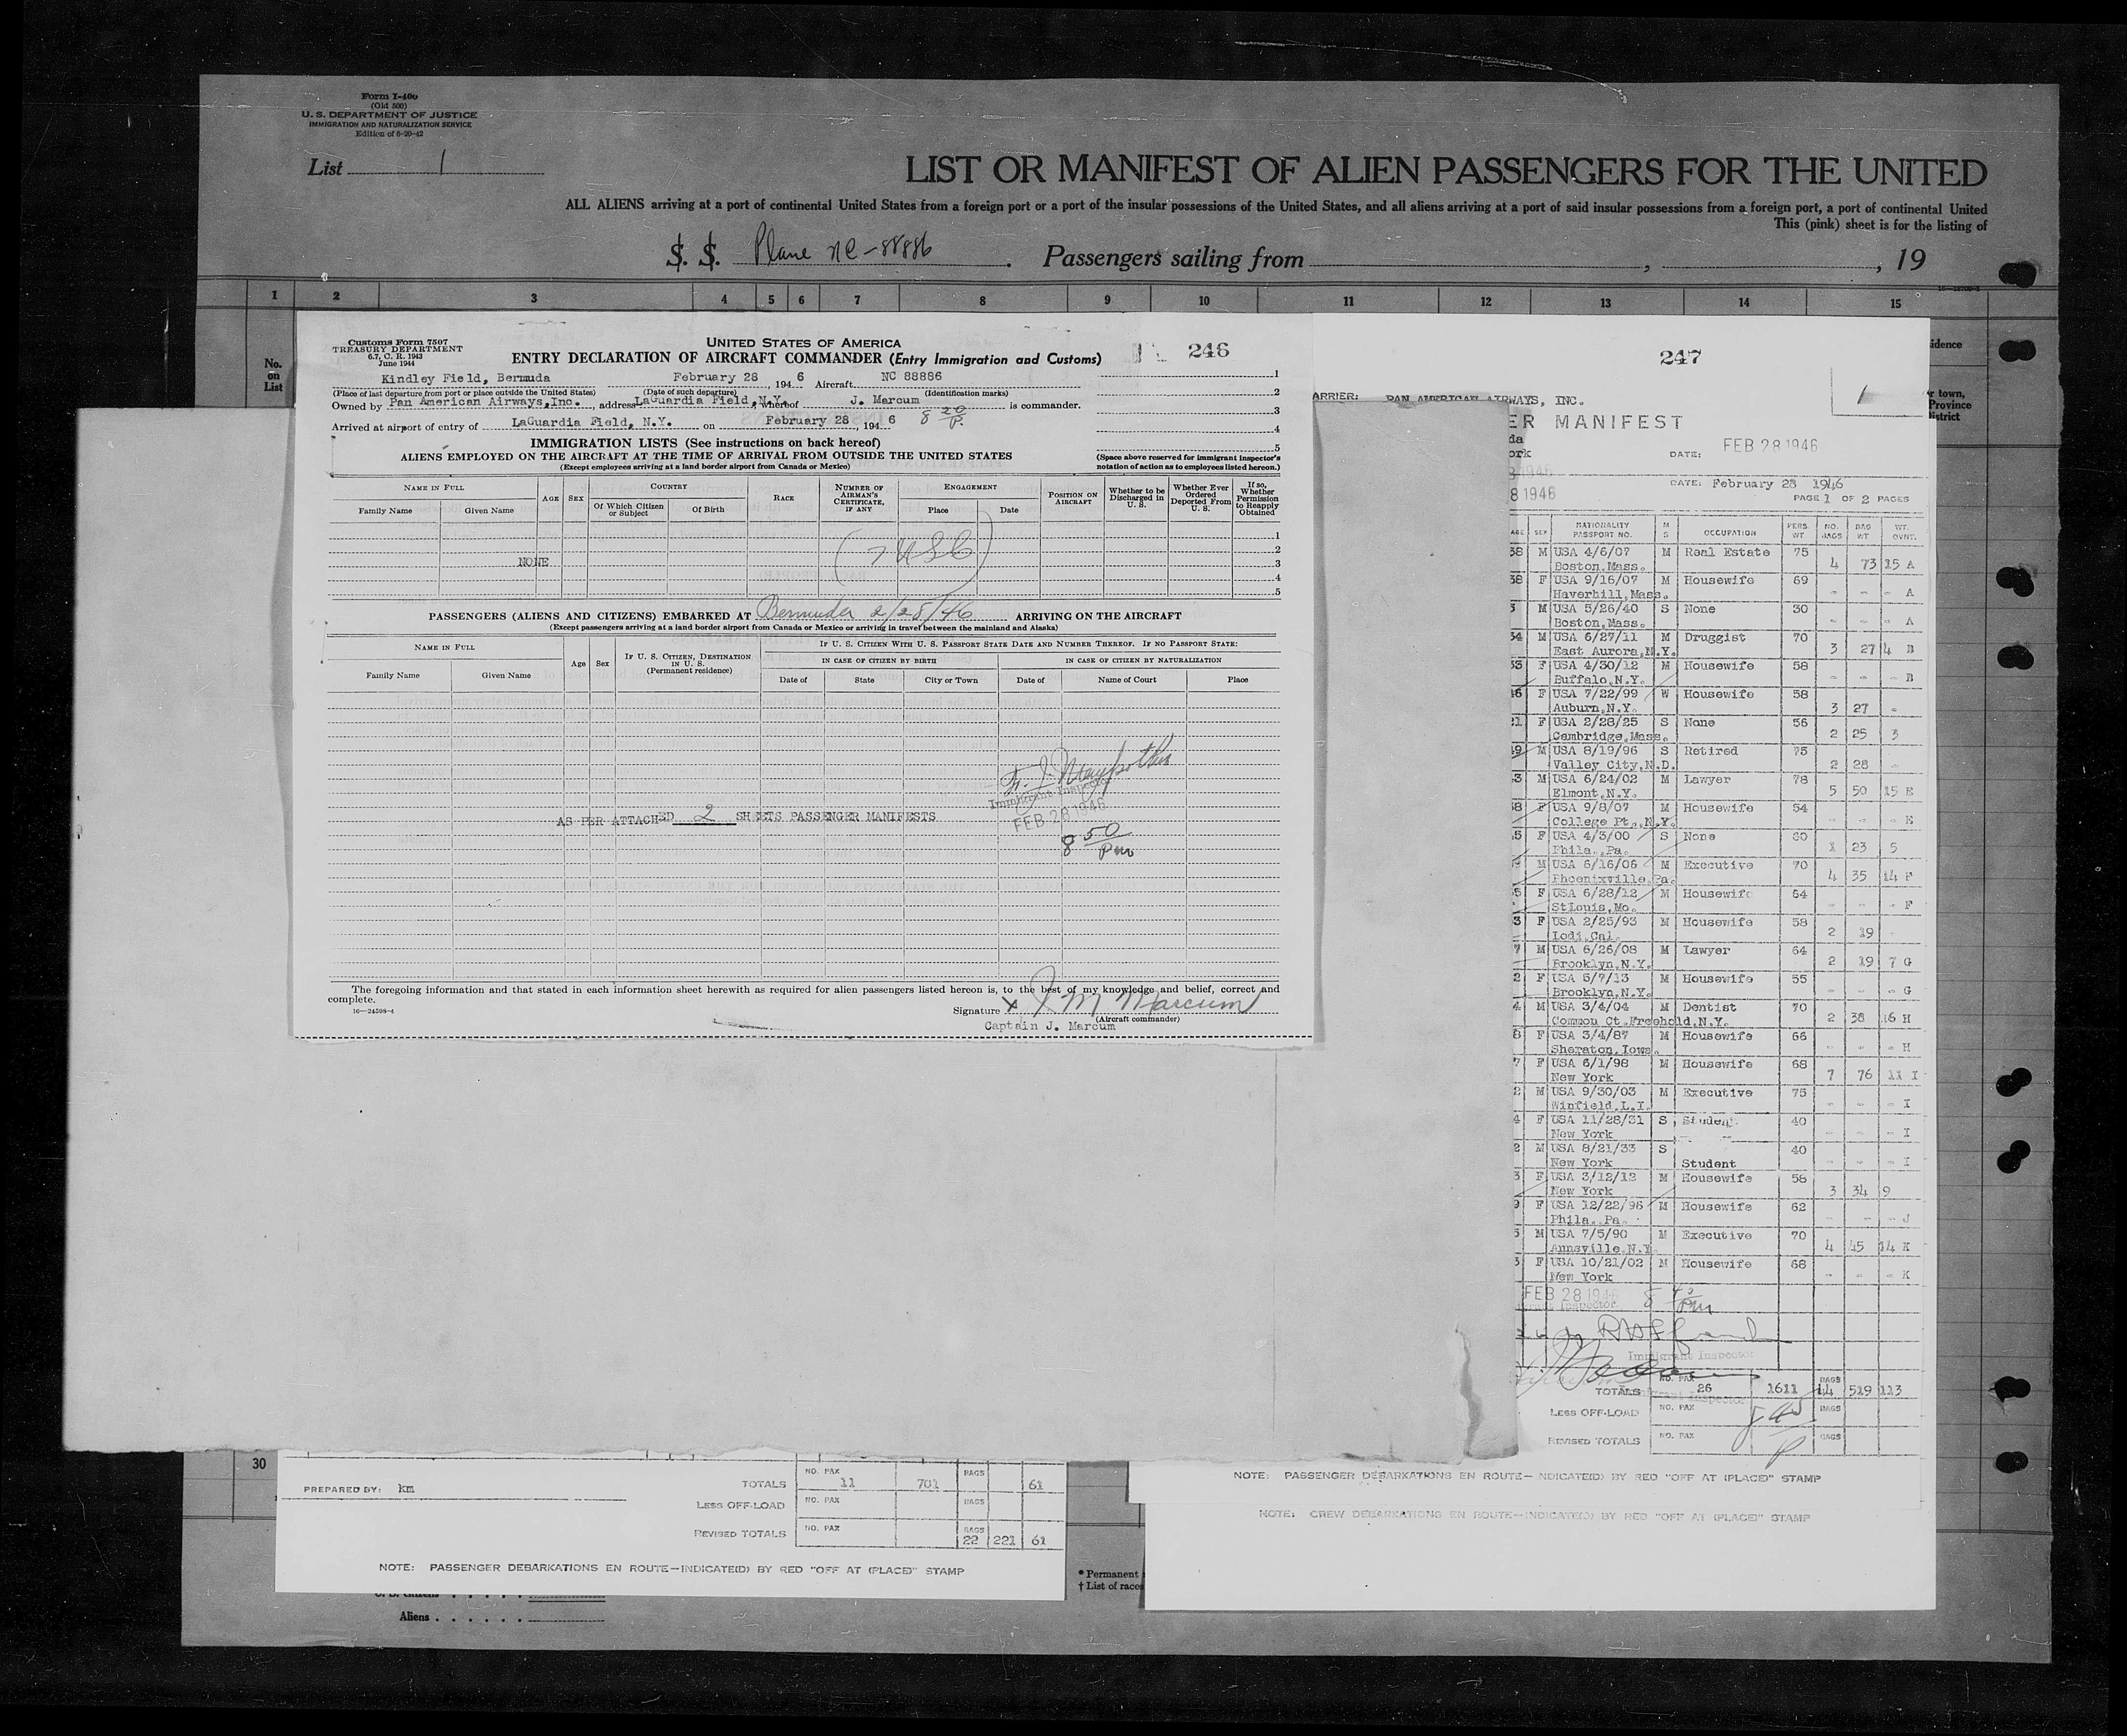 Form I-400
(Old 500)
U. S. DEPARTMENT OF JUSTICE
IMMIGRATION AND NATURALIZATION SERVICE
Edition of 6-20-42
List 1
LIST OR MANIFEST OF ALIEN PASSENGERS FOR THE UNITED
ALL ALIENS arriving at a port of continental United States from a foreign port or a port of the insular possessions of the United States, and all aliens arriving at a port of said insular possessions from a foreign port, a port of continental United
This (pink) sheet is for the listing of
S. S. Plane NC-88886 Passengers sailing from , , 19
1 2 3 4 5 6 7 8 9 10 11 12 13 14 15
No. on List
Customs Form 7507
TREASURY DEPARTMENT
6.7, C. R. 1943
June 1944
UNITED STATES OF AMERICA
ENTRY DECLARATION OF AIRCRAFT COMMANDER (Entry Immigration and Customs)
246
Kindley Field, Bermuda February 28, 1946 Aircraft NC 88886
(Place of last departure from port or place outside the United States) (Date of such departure) (Identification marks)
Owned by Pan American Airways, Inc., address LaGuardia Field, N.Y. whereof J. Marcum is commander.
Arrived at airport of entry of LaGuardia Field, N.Y. on February 28, 1946 8 20 P.
1
2
3
4
5
IMMIGRATION LISTS (See instructions on back hereof)
ALIENS EMPLOYED ON THE AIRCRAFT AT THE TIME OF ARRIVAL FROM OUTSIDE THE UNITED STATES
(Except employees arriving at a land border airport from Canada or Mexico)
(Space above reserved for immigrant inspector's notation of action as to employees listed hereon.)
NAME IN FULL AGE SEX COUNTRY RACE NUMBER OF AIRMAN'S CERTIFICATE, IF ANY ENGAGEMENT POSITION ON AIRCRAFT Whether to be Discharged in U. S. Whether Ever Ordered Deported From U. S. If so, Whether Permission to Reapply Obtained
Family Name Given Name Of Which Citizen or Subject Of Birth Place Date
1
2
3
4
5
NONE
(7 USC)
PASSENGERS (ALIENS AND CITIZENS) EMBARKED AT Bermuda 2/28/46 ARRIVING ON THE AIRCRAFT
(Except passengers arriving at a land border airport from Canada or Mexico or arriving in travel between the mainland and Alaska)
NAME IN FULL Age Sex IF U. S. CITIZEN, DESTINATION IN U. S. (Permanent residence) IF U. S. CITIZEN WITH U. S. PASSPORT STATE DATE AND NUMBER THEREOF. IF NO PASSPORT STATE:
IN CASE OF CITIZEN BY BIRTH IN CASE OF CITIZEN BY NATURALIZATION
Family Name Given Name Date of State City or Town Date of Name of Court Place
Immigrant Inspector
FEB 28 1946
8 50 Pm
AS PER ATTACHED 2 SHEETS PASSENGER MANIFESTS
The foregoing information and that stated in each information sheet herewith as required for alien passengers listed hereon is, to the best of my knowledge and belief, correct and
complete.
16—24598-4
Signature x J M Marcum
(Aircraft commander)
Captain J. Marcum
247
1
ARRIER: PAN AMERICAN AIRWAYS, INC.
ER MANIFEST
da
ork
DATE: FEB 28 1946
8 1946
DATE: February 28 1946
PAGE 1 OF 2 PAGES
AGE SEX NATIONALITY PASSPORT NO. M S OCCUPATION PERS. WT NO. BAGS BAG WT WT. OVNT.
38 M USA 4/6/07 M Real Estate 75
Boston, Mass. 4 73 15 A
38 F USA 9/16/07 M Housewife 69
Haverhill, Mass. - - - A
5 M USA 5/26/40 S None 30
Boston, Mass. - - - A
34 M USA 6/27/11 M Druggist 70
East Aurora, N.Y. 3 27 4 B
33 F USA 4/30/12 M Housewife 58
Buffalo, N.Y. - - - B
46 F USA 7/22/99 W Housewife 58
Auburn, N.Y. 3 27 -
21 F USA 2/28/25 S None 56
Cambridge, Mass. 2 25 3
49 M USA 8/19/96 S Retired 75
Valley City, N.D. 2 28 -
3 M USA 6/24/02 M Lawyer 78
Elmont, N.Y. 5 50 15 E
38 F USA 9/8/07 M Housewife 54
College Pt., N.Y. - - - E
5 F USA 4/3/00 S None 60
Phila., Pa. 1 23 5
M USA 6/16/06 M Executive 70
Phoenixville, Pa. 4 35 14 F
5 F USA 6/28/12 M Housewife 64
St Louis, Mo. - - - F
3 F USA 2/25/93 M Housewife 58
Lodi, Cal. 2 19 -
7 M USA 6/26/08 M Lawyer 64
Brooklyn, N.Y. 2 19 7 G
2 F USA 5/7/13 M Housewife 55
Brooklyn, N.Y. - - - G
4 M USA 3/4/04 M Dentist 70
Common Ct. Freehold, N.Y. 2 38 16 H
8 F USA 3/4/87 M Housewife 66
Sheraton, Iowa. - - - H
7 F USA 6/1/98 M Housewife 68
New York 7 76 11 I
2 M USA 9/30/03 M Executive 75
Winfield, L.I. - - - I
4 F USA 11/28/31 S Student 40
New York - - - I
2 M USA 8/21/33 S 40
New York Student - - - I
3 F USA 3/12/12 M Housewife 58
New York 3 34 9
9 F USA 12/22/96 M Housewife 62
Phila., Pa. - - - J
5 M USA 7/5/90 M Executive 70
Annsville, N.Y. 4 45 14 K
3 F USA 10/21/02 M Housewife 68
New York - - - K
FEB 28 1946 8 45 Pm
Immigrant Inspector
TOTALS NO. PAX 26 1611 BAGS 44 519 113
LESS OFF-LOAD NO. PAX BAGS
REVISED TOTALS NO. PAX BAGS
NOTE: PASSENGER DEBARKATIONS EN ROUTE—INDICATE(D) BY RED "OFF AT (PLACE)" STAMP
NOTE: CREW DEBARKATIONS EN ROUTE—INDICATE(D) BY RED "OFF AT (PLACE)" STAMP
idence
r town,
Province
istrict
30
PREPARED BY: km
TOTALS NO. PAX 11 701 BAGS 61
LESS OFF-LOAD NO. PAX BAGS
REVISED TOTALS NO. PAX BAGS 22 221 61
NOTE: PASSENGER DEBARKATIONS EN ROUTE—INDICATE(D) BY RED "OFF AT (PLACE)" STAMP
* Permanent
† List of races
U. S. Citizens
Aliens